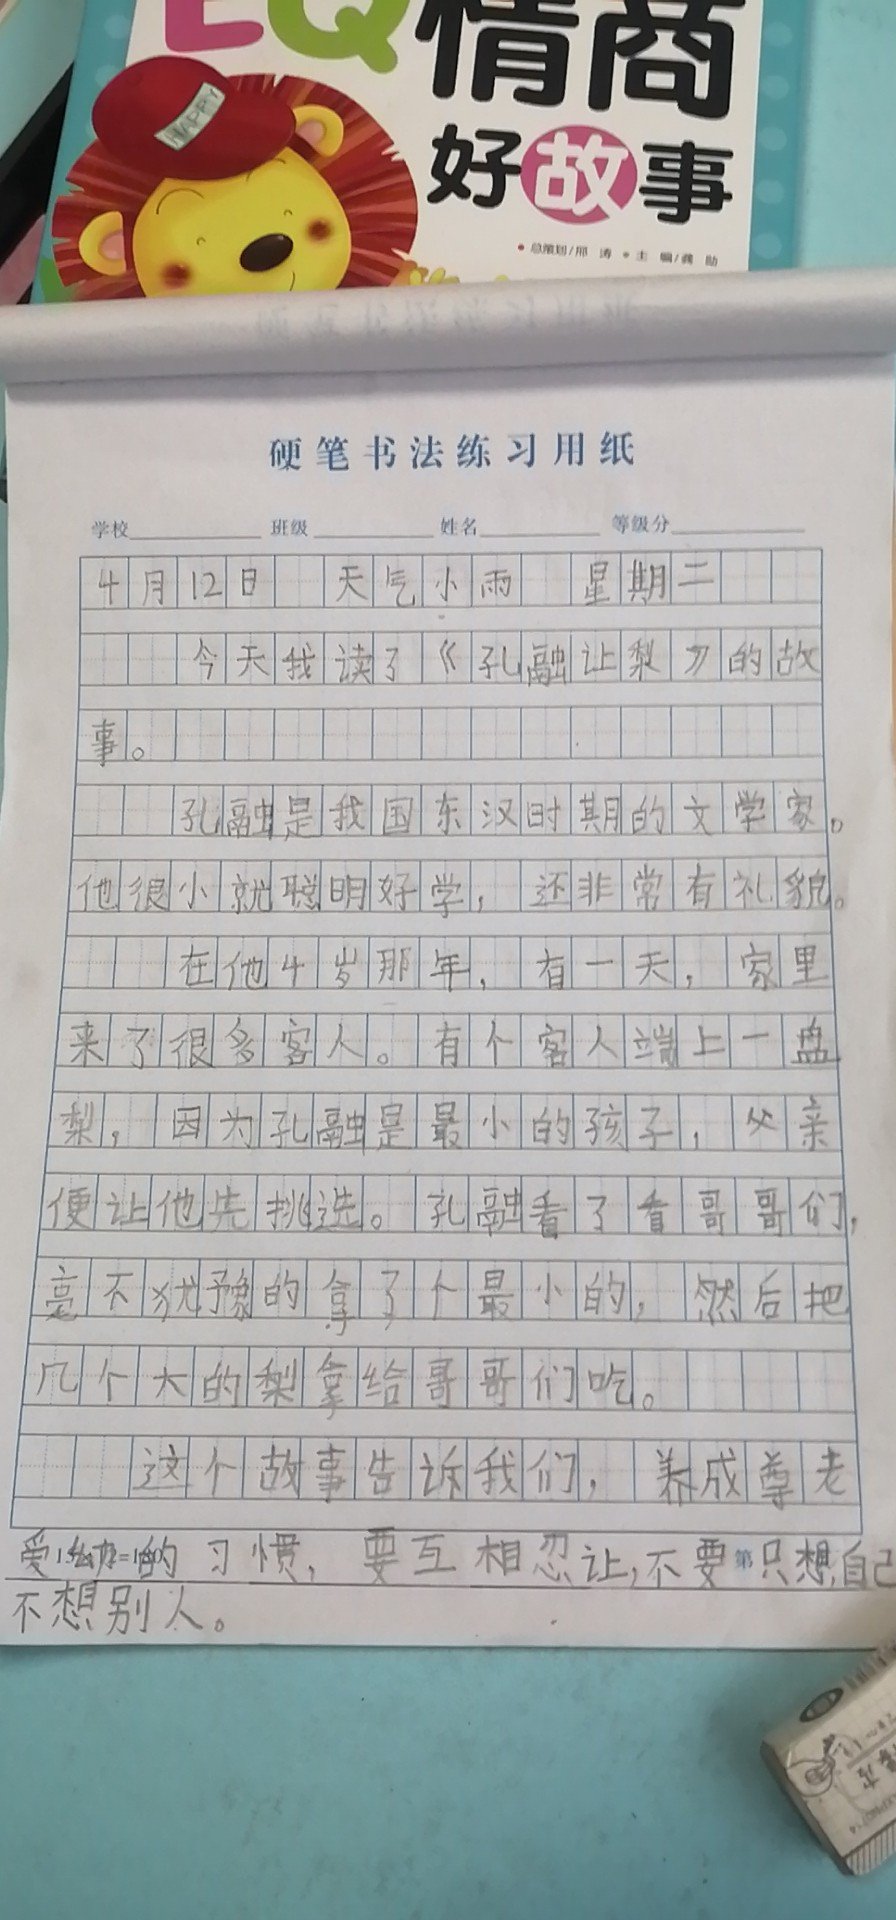 EQ情商
好故事
HAPPY
• 总策划/邢 涛 • 主 编/龚 勋
硬笔书法练习用纸
学校 班级 姓名 等级分
4月12日 天气小雨 星期二
今天我读了《孔融让梨》的故
事。
孔融是我国东汉时期的文学家。
他很小就聪明好学，还非常有礼貌。
在他4岁那年，有一天，家里
来了很多客人。有个客人端上一盘
梨，因为孔融是最小的孩子，父亲
便让他先挑选。孔融看了看哥哥们，
毫不犹豫的拿了个最小的，然后把
几个大的梨拿给哥哥们吃。
这个故事告诉我们，养成尊老
爱幼的习惯，要互相忍让，不要第只想自己
不想别人。